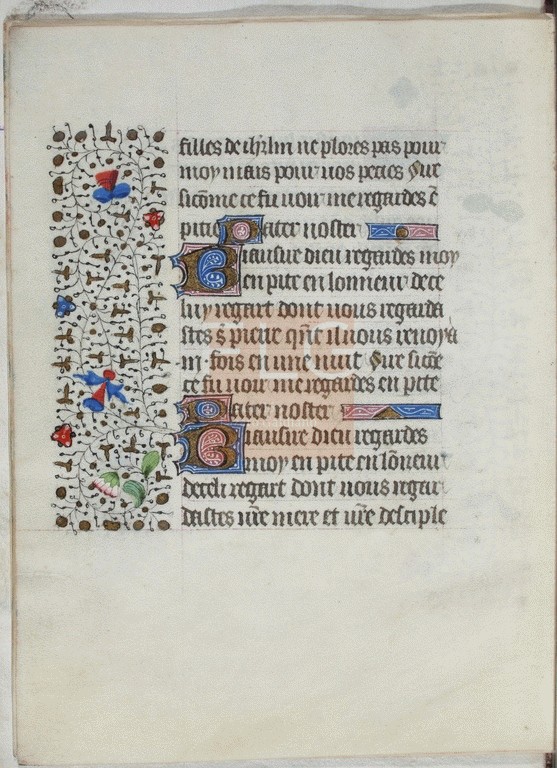 filles de ihrlm ne plores pas pour
moy mais pour vos pecies Sire
sicōme ce fu voir me regardes ē
pitie Pater noster
Biausire dieu regardes moy
en pite en lonneur de ce
luy regart dont vous regarda
stes s pierre qn̄t il vous renoya
·iii· fois en une nuit Sire sicōe
ce fu voir me regardes en pite
Pater noster
Biausire dieu regardes
moy en pite en lōneur
de celi regart dont vous regar
dastes vr̄e mere et vr̄e desciple